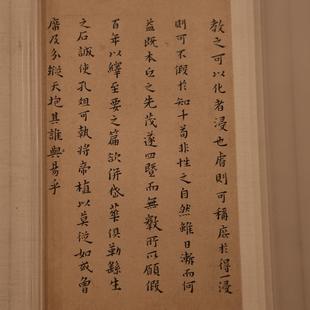 教之可以化者浸也膚則可稱度於得一浸
則可不假於知十苟非性之自然雖日漸而何
益既本立之先茂遂四暨而無數所以願假
百年以繹至要之篇欲併岱華俱勒縣生
之石誠使孔姐可執將帝植以莫從如或會
靡及分縱天抱其誰與易乎